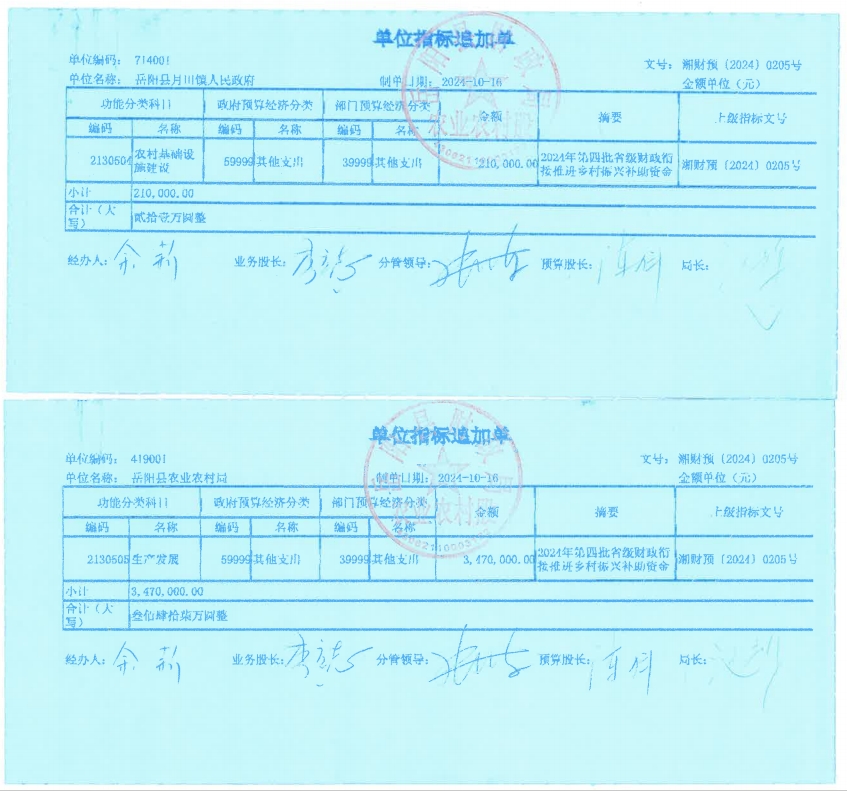 单位指标追加单
单位编码： 714001 文号： 湘财预（2024）0205号
单位名称： 岳阳县月田镇人民政府 制单日期： 2024-10-16 金额单位（元）
功能分类科目 政府预算经济分类 部门预算经济分类 金额 摘要 上级指标文号
编码 名称 编码 名称 编码 名称
2130504 农村基础设施建设 59999 其他支出 39999 其他支出 210,000.00 2024年第四批省级财政衔接推进乡村振兴补助资金 湘财预（2024）0205号
小计 210,000.00
合计（大写） 贰拾壹万圆整
经办人： 业务股长： 分管领导： 预算股长： 局长：
岳阳县财政局
农业农村股
单位指标追加单
单位编码： 419001 文号： 湘财预（2024）0205号
单位名称： 岳阳县农业农村局 制单日期： 2024-10-16 金额单位（元）
功能分类科目 政府预算经济分类 部门预算经济分类 金额 摘要 上级指标文号
编码 名称 编码 名称 编码 名称
2130505 生产发展 59999 其他支出 39999 其他支出 3,470,000.00 2024年第四批省级财政衔接推进乡村振兴补助资金 湘财预（2024）0205号
小计 3,470,000.00
合计（大写） 叁佰肆拾柒万圆整
经办人： 业务股长： 分管领导： 预算股长： 局长：
岳阳县财政局
农业农村股